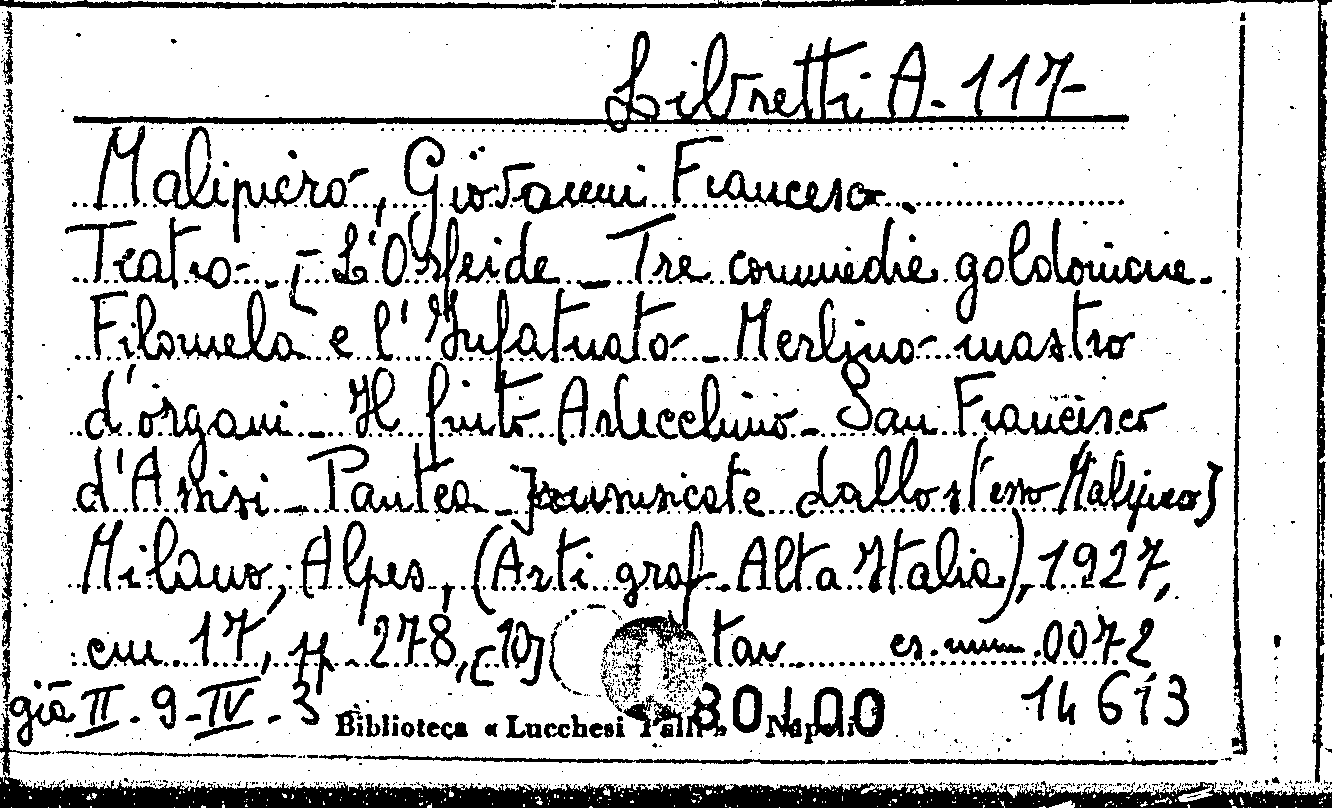 Libretti A. 117
Malipiero, Giovanni Francesco.
Teatro. [L'Orfeide _ Tre commedie goldoniane.
Filomela e l'Infatuato _ Merlino mastro
d'organi _ Il finto Arlecchino _ San Francesco
d'Assisi _ Pantea _ dallo stesso Malipiero]
Milano, Alpes, (Arti graf. Alta Italia), 1927,
cm. 17, pp. 278, [10] tav. es. num. 0072
già II. 9-IV. 3 Biblioteca « Lucchesi Palli » Napoli 14613